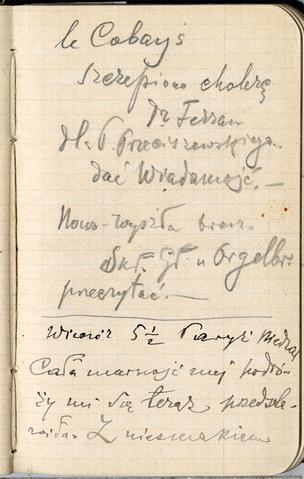 le Cobays
Szczepiono cholerę
Dr Ferran
dla P. Preciszewskiego
dać Wiadomość. —
Nowo-wyszła brosz.
Skł. Gł. u Orgelbr.
przeczytać. —
Wieczór 5 1/2 Paryż
Całą marność mej podró-
ży mi się teraz przedsta-
wiła. Z niesmakiem